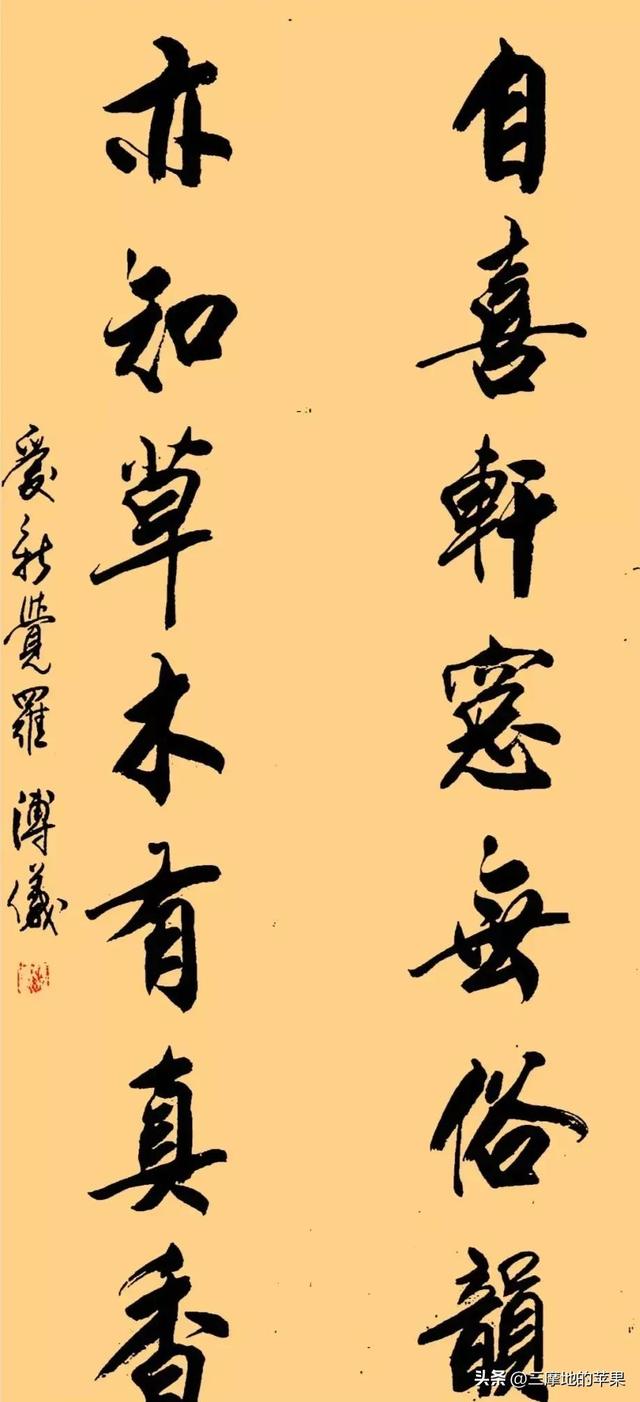 自喜軒窓無俗韻
亦知草木有真香
愛新覺羅溥儀
头条 @三摩地的苹果